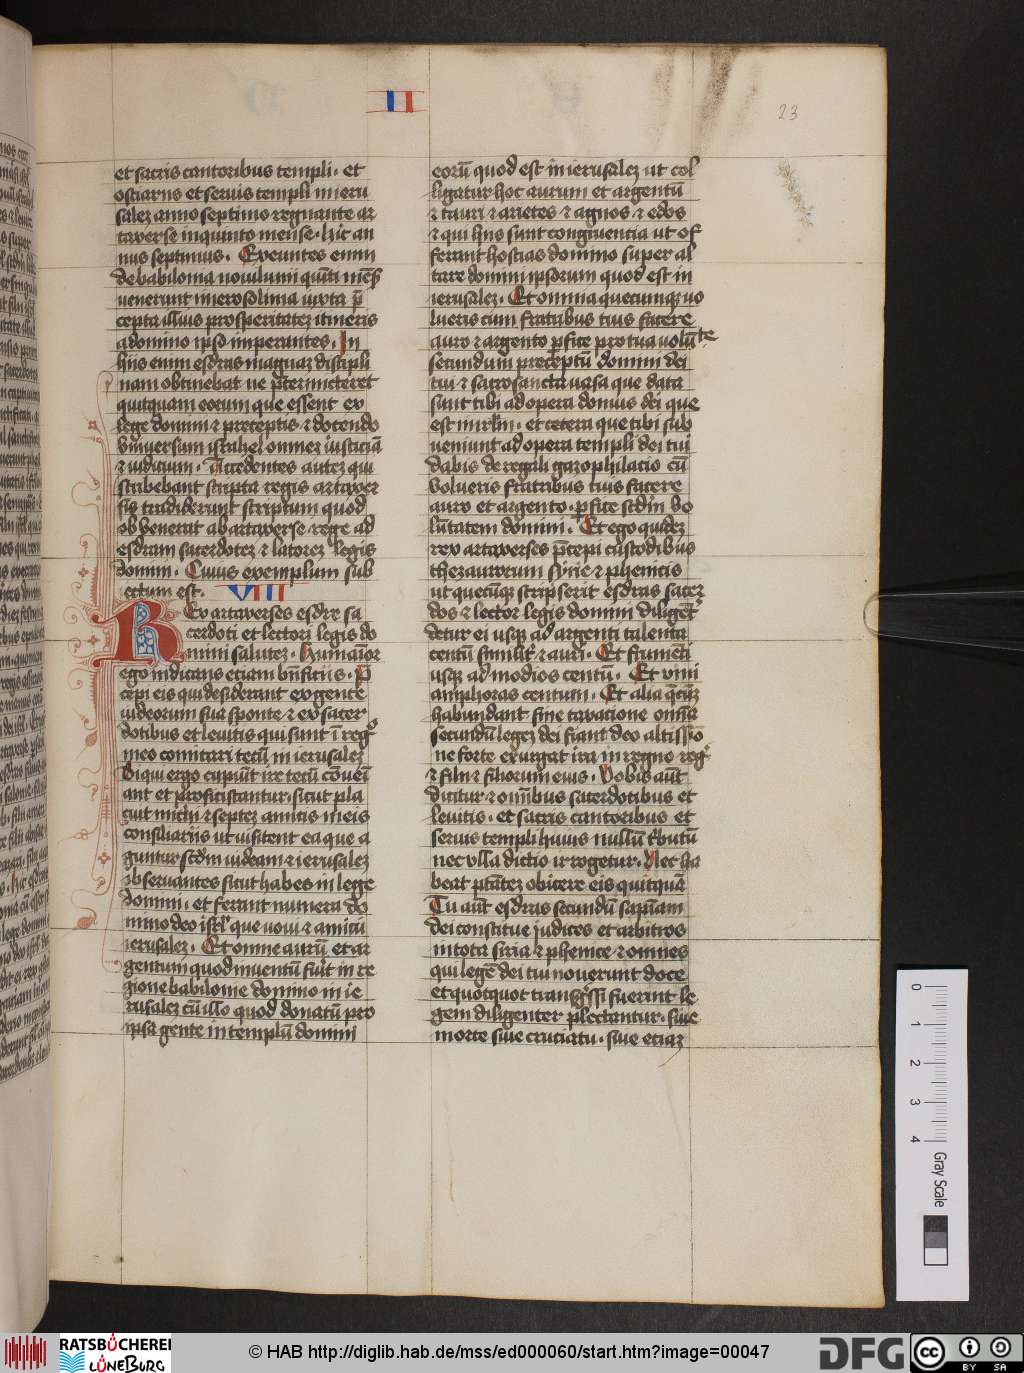 II
23
et sacris cantoribus templi · et
ostiariis et seruis templi in ieru
salez anno septimo regnante ar
taxerse in quinto mense · hic an
nus septimus · Exeuntes enim
de babilonia nouilunii qu̅ti me̅s
uenerunt in ierosolima iuxta p̅
cepta illius prosperitatez itineris
a domino ip̅o imperantes · In
hiis enim esdras magnaz discipli
nam obtinebat ne p̅termitteret
quitquam eorum que essent ex
lege domini ⁊ preceptis ⁊ docendo
vniuersum israhel omnez iusticia̅
⁊ iudicium · Accedentes autez qui
scribebant scripta regis artaxer
sis tradiderunt scriptum quod
obuenerat ab artaxerse rege ad
esdram sacerdotez ⁊ latorez legis
domini · Cuius exemplum sub
iectum est · VIII
Rex artaxerses esdre sa
cerdoti et lectori legis do
mini salutez · Humanior
ego indicans etiam b̅nficiis · P̅
cepi eis qui desiderant ex gente
iudeorum sua sponte ⁊ ex sacer
dotibus et leuitis qui sunt i̅ reg̊
meo comitari tecu̅ in ierusalez
Si qui ergo cupiu̅t ire tecu̅ co̅uei̅
ant et proficiscantur · sicut pla
cuit michi ⁊ septez amicis meis
consiliariis ut uisitent ea que a
guntur sc̅dm iudeam ⁊ ierusalez
obseruantes sicut habes in lege
domini · et ferant munera do
mino deo isr̅l que noui ⁊ amici
ierusalez · Et omne auru̅ et ar
gentum quod inuentu̅ fu̅it in re
gione babilonie domino in ie
rusalez cu̅ illo quod donatu̅ pro
ipsa gente in templu̅ domini
eoru̅ quod est in ierusalez ut col
ligatur hoc aurum et argentu̅
⁊ tauri ⁊ arietes ⁊ agnos ⁊ edos
⁊ qui hiis sunt congruentia ut of
ferant hostias domino super al
tare domini ipsorum quod est in
ierusalez · Et omnia quecumqz uo
lueris cum fratribus tuis facere
auro ⁊ argento p̅fice pro tua volu̅te
secundum preceptu̅ domini dei
tui ⁊ sacrosancta uasa que data
sunt tibi ad opera domus dei que
est in ir̅lm · et cetera que tibi sub
ueniunt ad opera templi dei tui
dabis de regali gazophilacio cu̅
volueris fratribus tuis facere
auro et argento · p̅fice sc̅dm vo
lu̅tatem domini · Et ego quidez
rex artaxerses p̅cepi custodibus
thezaurorum syrie ⁊ phenicis
ut quecu̅qz scripserit esdras sacer
dos ⁊ lector legis domini diligen̅t
detur ei usqz ad argenti talenta
centu̅ simili̅t ⁊ auri · Et frumenti
usqz ad modios centu̅ · Et vini
amphoras centum · Et alia quecu̅qz
habundant sine taxacione om̅ia
secundu̅ legez dei fiant deo altissi̅o
ne forte exurgat ira in regno reg̊
⁊ filii ⁊ filiorum eius · Vobis au̅t
dicitur ⁊ om̅ibus sacerdotibus et
leuitis · et sacris cantoribus et
seruis templi huius nullu̅ t̊butu̅
nec ulla dictio irrogetur · Nec ha
beat p̅tatez obicere eis quitqua̅
Tu au̅t esdras secundu̅ sapi̅am
dei constitue iudices et arbitros
in tota siria ⁊ phenice ⁊ omnes
qui lege̅ dei tui nouerunt doce
et quotquot transg̊ssi fuerint le
gem diligenter plectantur · siue
morte siue cruciatu · siue etiaz
0
1
2
3
4
Gray Scale
RATSBÜCHEREI
LÜNEBURG
© HAB http://diglib.hab.de/mss/ed000060/start.htm?image=00047
DFG
cc
BY SA